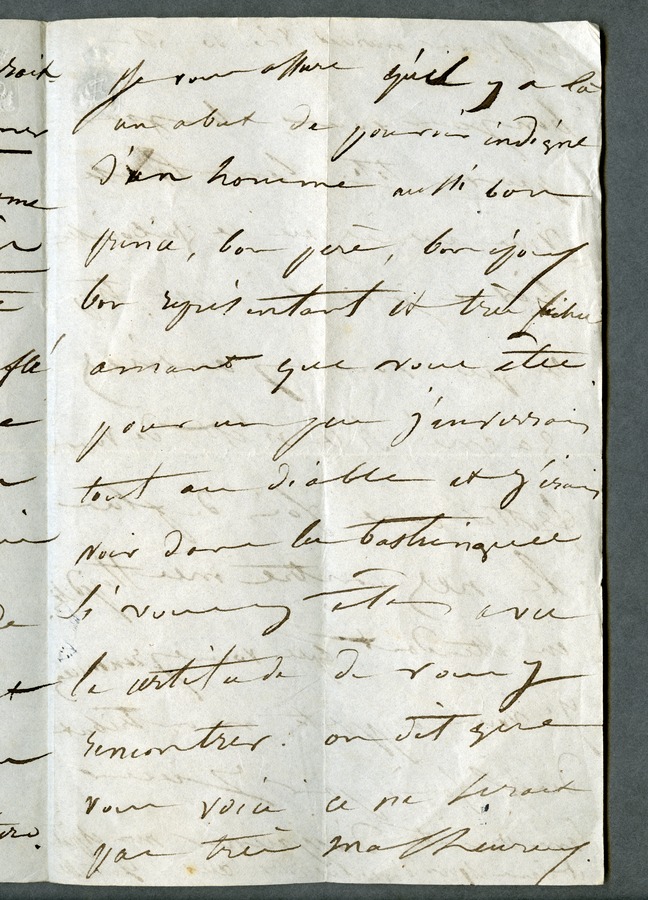 je vous assure qu'il y a là
un abus de pouvoir indigne
d'un homme aussi bon
prince, bon père, bon époux
bon représentant et très fichu
amant que vous êtes
pour un peu j'enverrais
tout au diable et j'irais
voir dans les bastringues
si vous y êtes avec
la certitude de vous y
rencontrer. on dit que
vous voici ce ne serait
pas très malheureux.